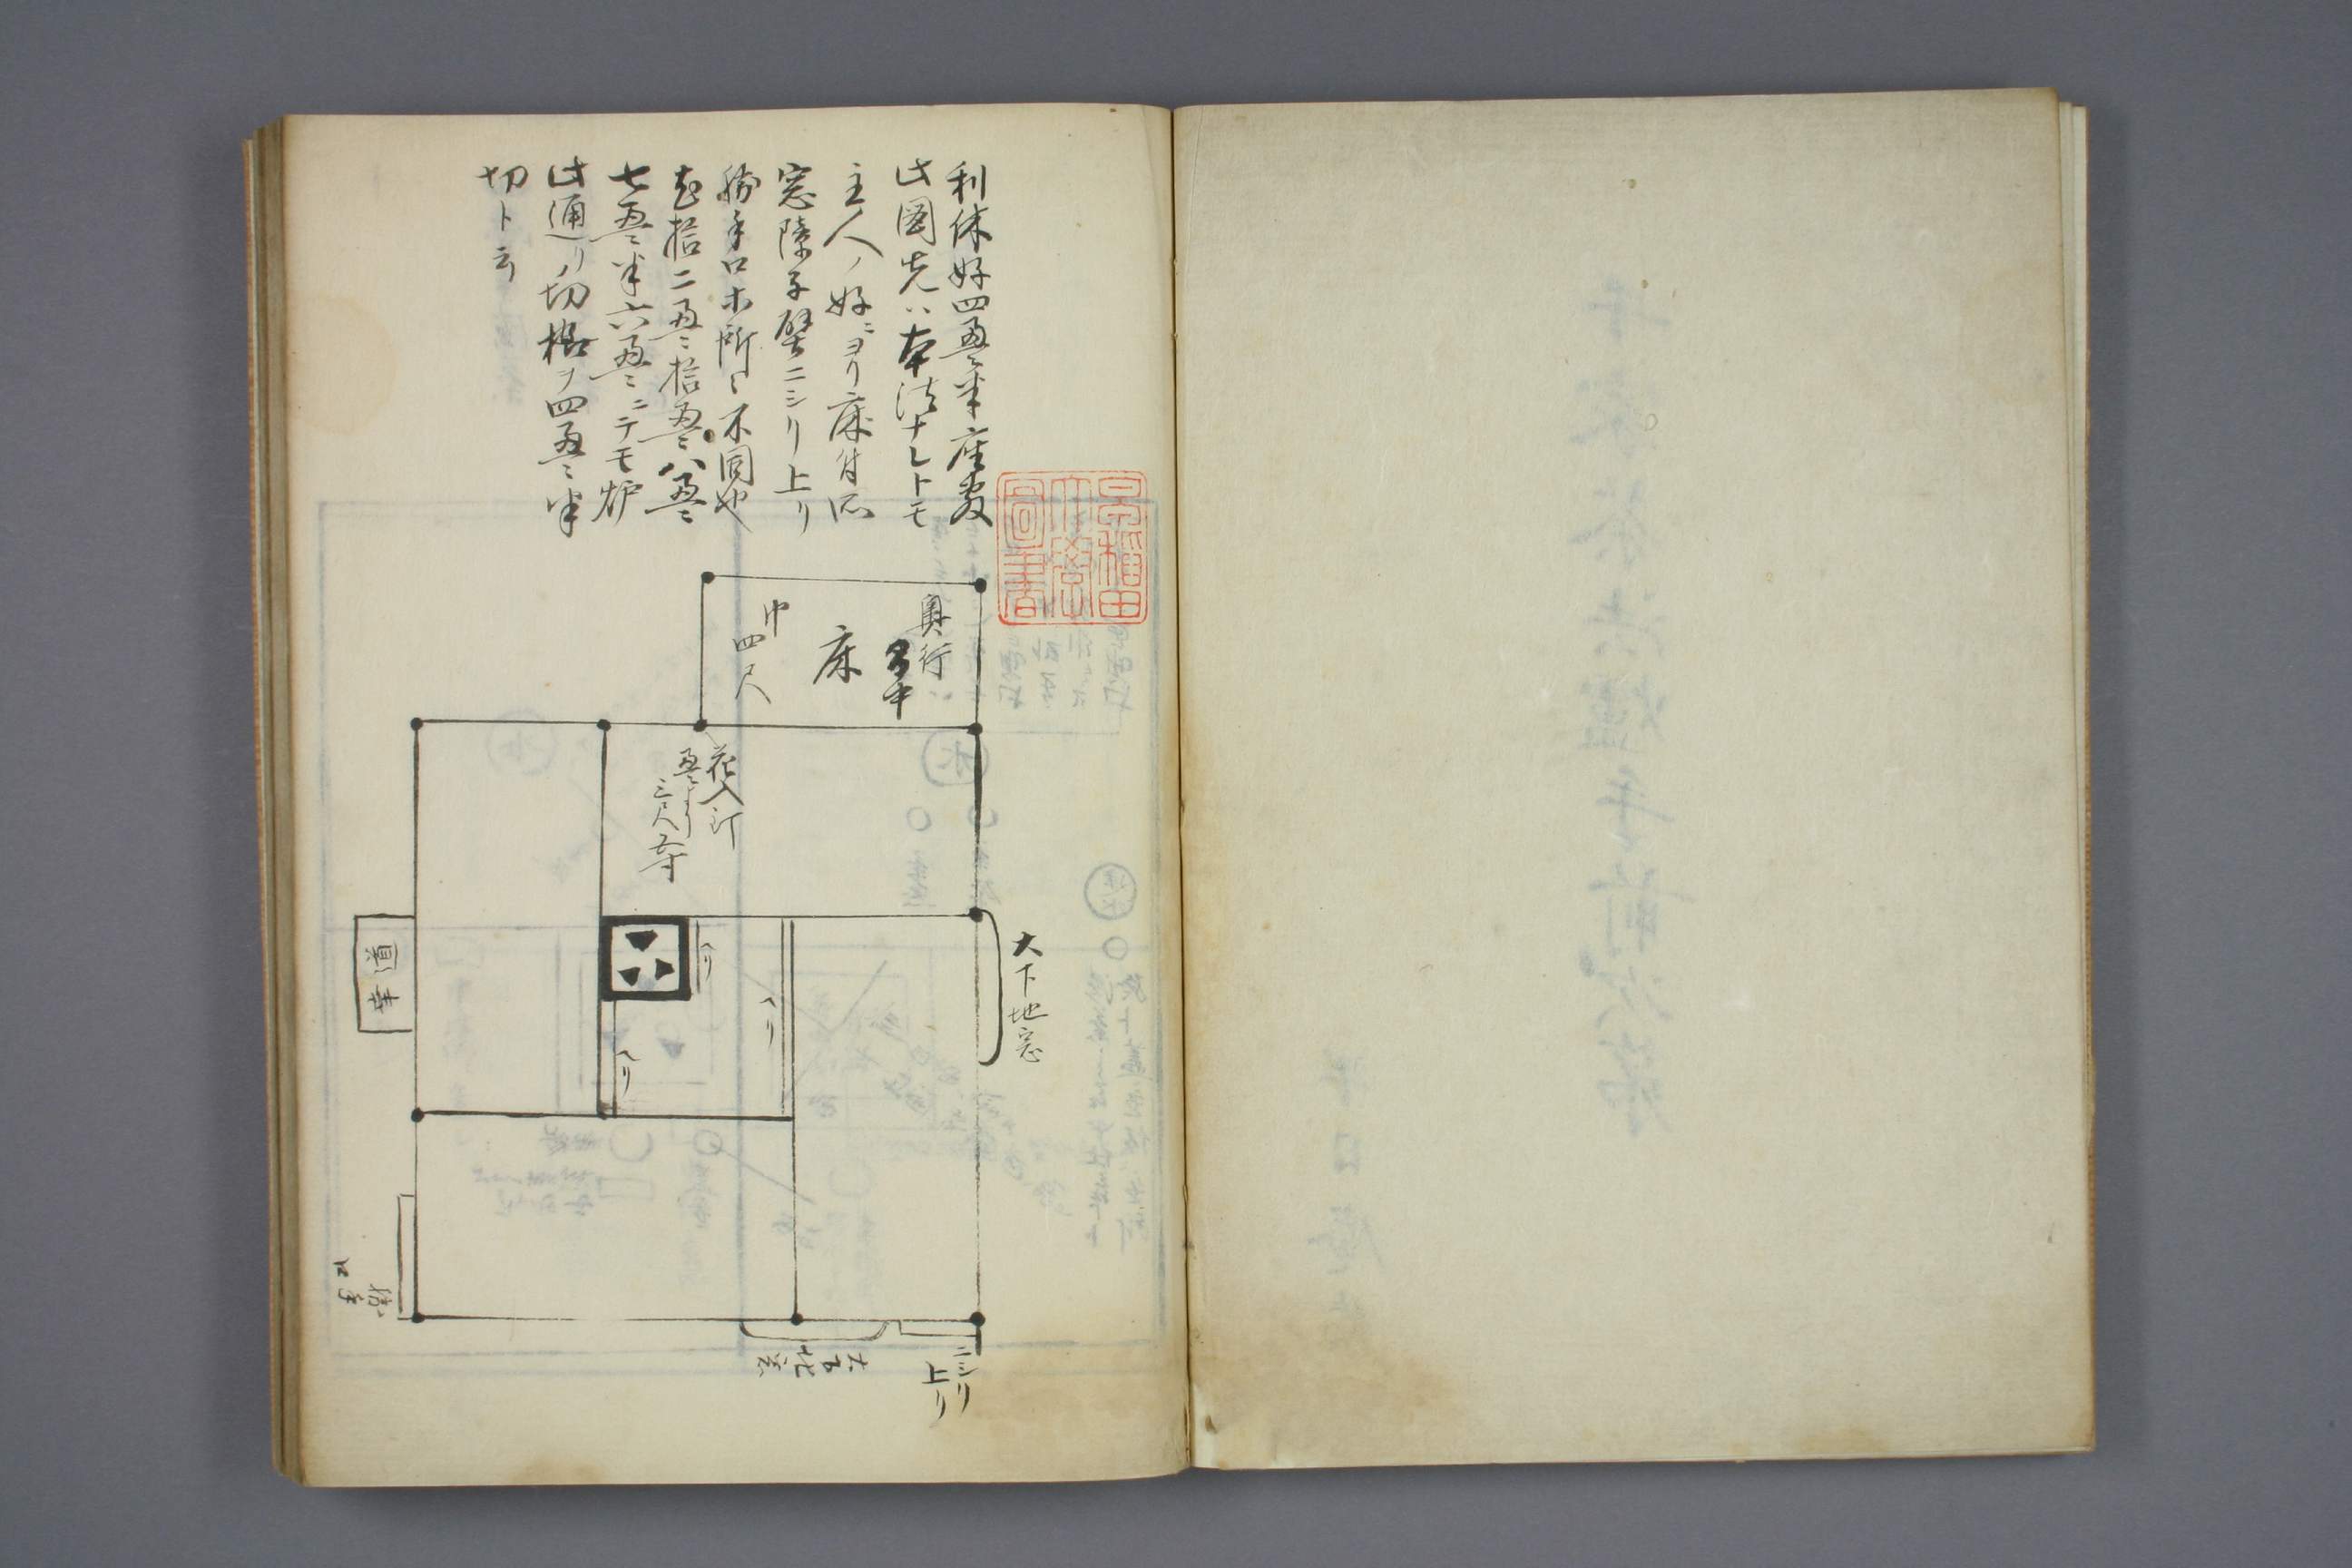 利休好四畳半座敷
此図先ハ本法ナレトモ
主人ノ好ニヨリ床付所
窓障子壁ニシリ上リ
勝手口ホ所々不同也
尤拾二畳拾畳八畳
七畳半六畳ニテモ炉
此通リノ切様ヲ四畳半
切ト云
早稲田
大学
図書
奥行
床
巾四尺
花入釘
畳ヨリ
三尺五寸
大下地窓
ヘリ
ヘリ
ヘリ
勝手
口
大下地窓
ニシリ
上リ